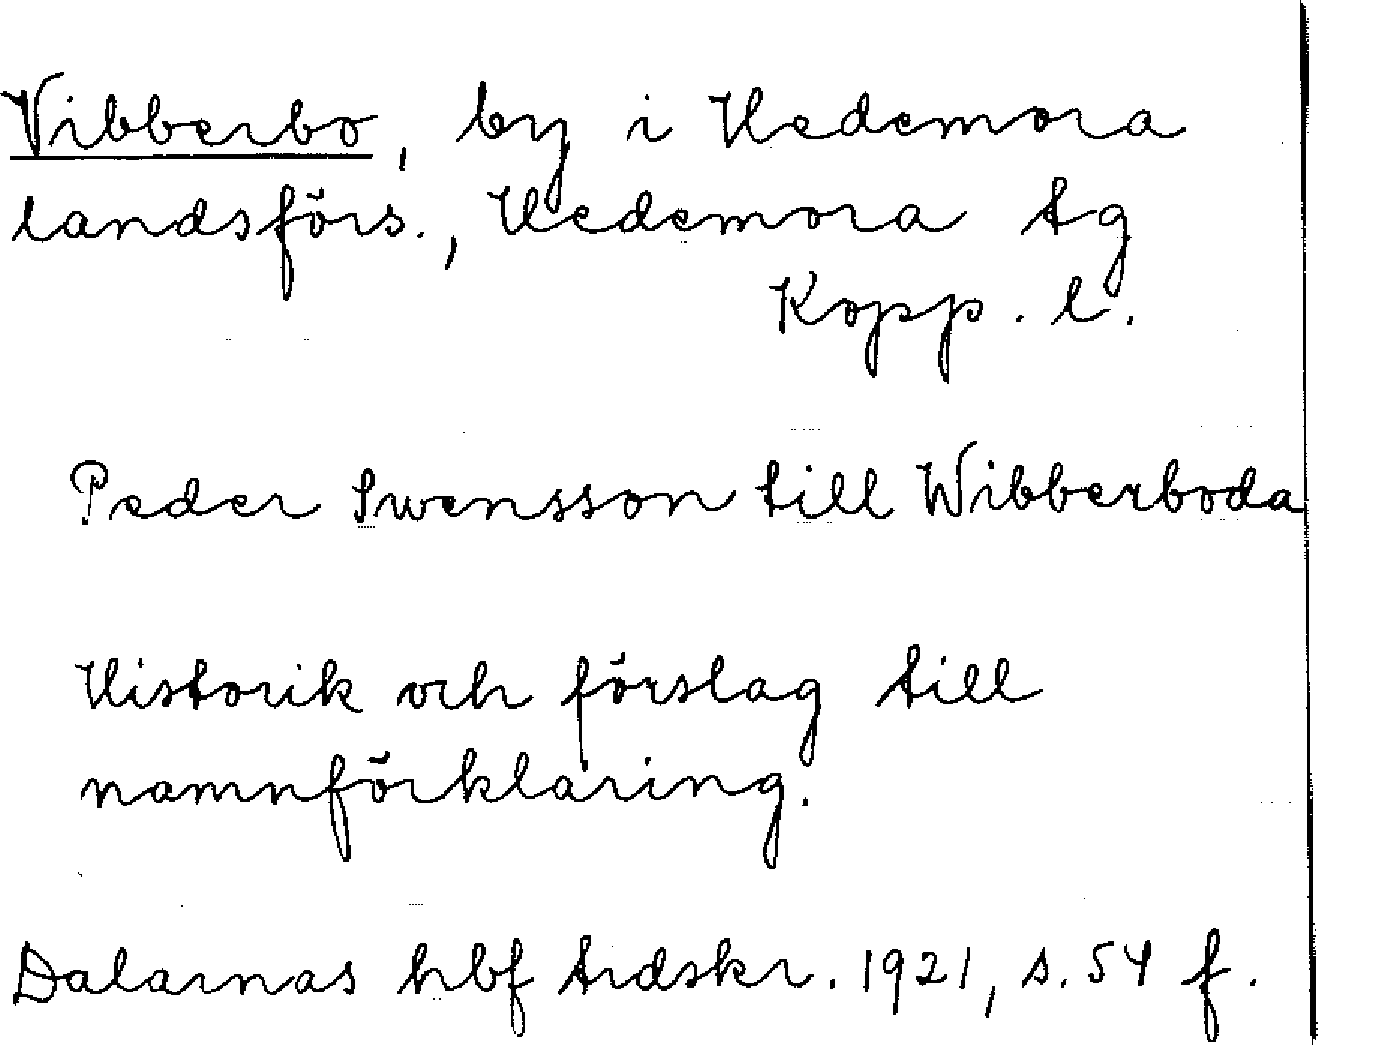 Vibberbo, by i Hedemora
landsförs., Hedemora tg
Kopp. l.
Peder Swensson till Wibberboda
Historik och förslag till
namnförklaring.
Dalarnas hbf tidskr. 1921, s. 54 f.